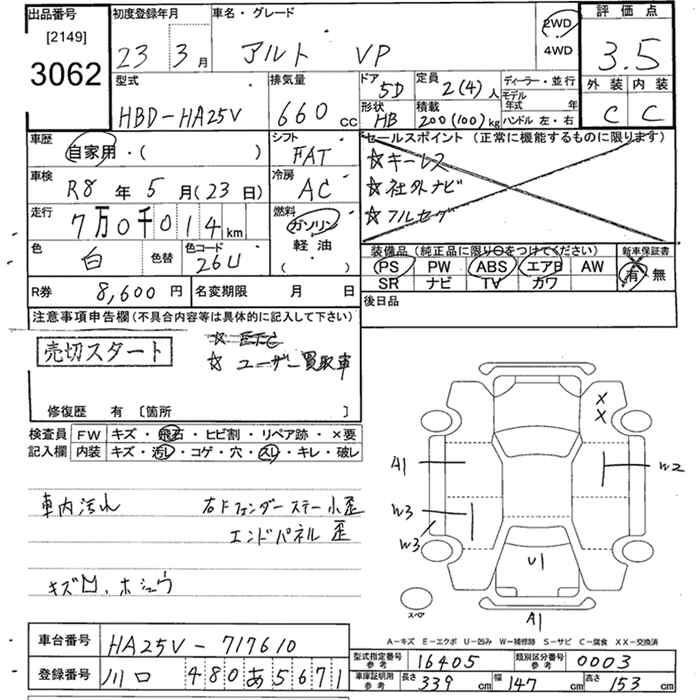 出品番号 初度登録年月 車名・グレード 2WD 評価点
[2149] 23 3月 アルト VP 4WD 3.5
3062 型式 排気量 ドア 5D 定員 2(4)人 ディーラー・並行 外装 内装
HBD-HA25V 660cc 形状 HB 積載 200(100)kg モデル年式 年 C C
ハンドル 左・右
車歴 自家用・( ) シフト FAT セールスポイント(正常に機能するものに限ります)
車検 R8年5月(23日) 冷房 AC ☆キーレス
☆社外ナビ
走行 7万0千014km 燃料 ガソリン ☆フルセグ
軽油
色 白 色替 色コード 26U ( ) 装備品(純正品に限り○をつけてください) 新車保証書
PS PW ABS エアB AW 有 無
SR ナビ TV カワ
R券 8,600円 名変期限 月 日 後日品
注意事項申告欄(不具合内容等は具体的に記入して下さい)
売切スタート ☆ ETC
☆ ユーザー買取車
修復歴 有 [箇所 ]
検査員 FW キズ・飛石・ヒビ割・リペア跡・×要
記入欄 内装 キズ・汚レ・コゲ・穴・スレ・キレ・破レ
X
X
A1 W2
W3
W3
U1
A1
スペア
車内汚れ 右Fフェンダーステー小歪
エンドパネル歪
キズ凹、ホシュウ
A-キズ E-エクボ U-凹み W-補修跡 S-サビ C-腐食 XX-交換済
車台番号 HA25V-717610 型式指定番号 参考 16405 類別区分番号 参考 0003
登録番号 川口 480 あ 5671 車庫証明用 参考 長さ 339cm 幅 147cm 高さ 153cm